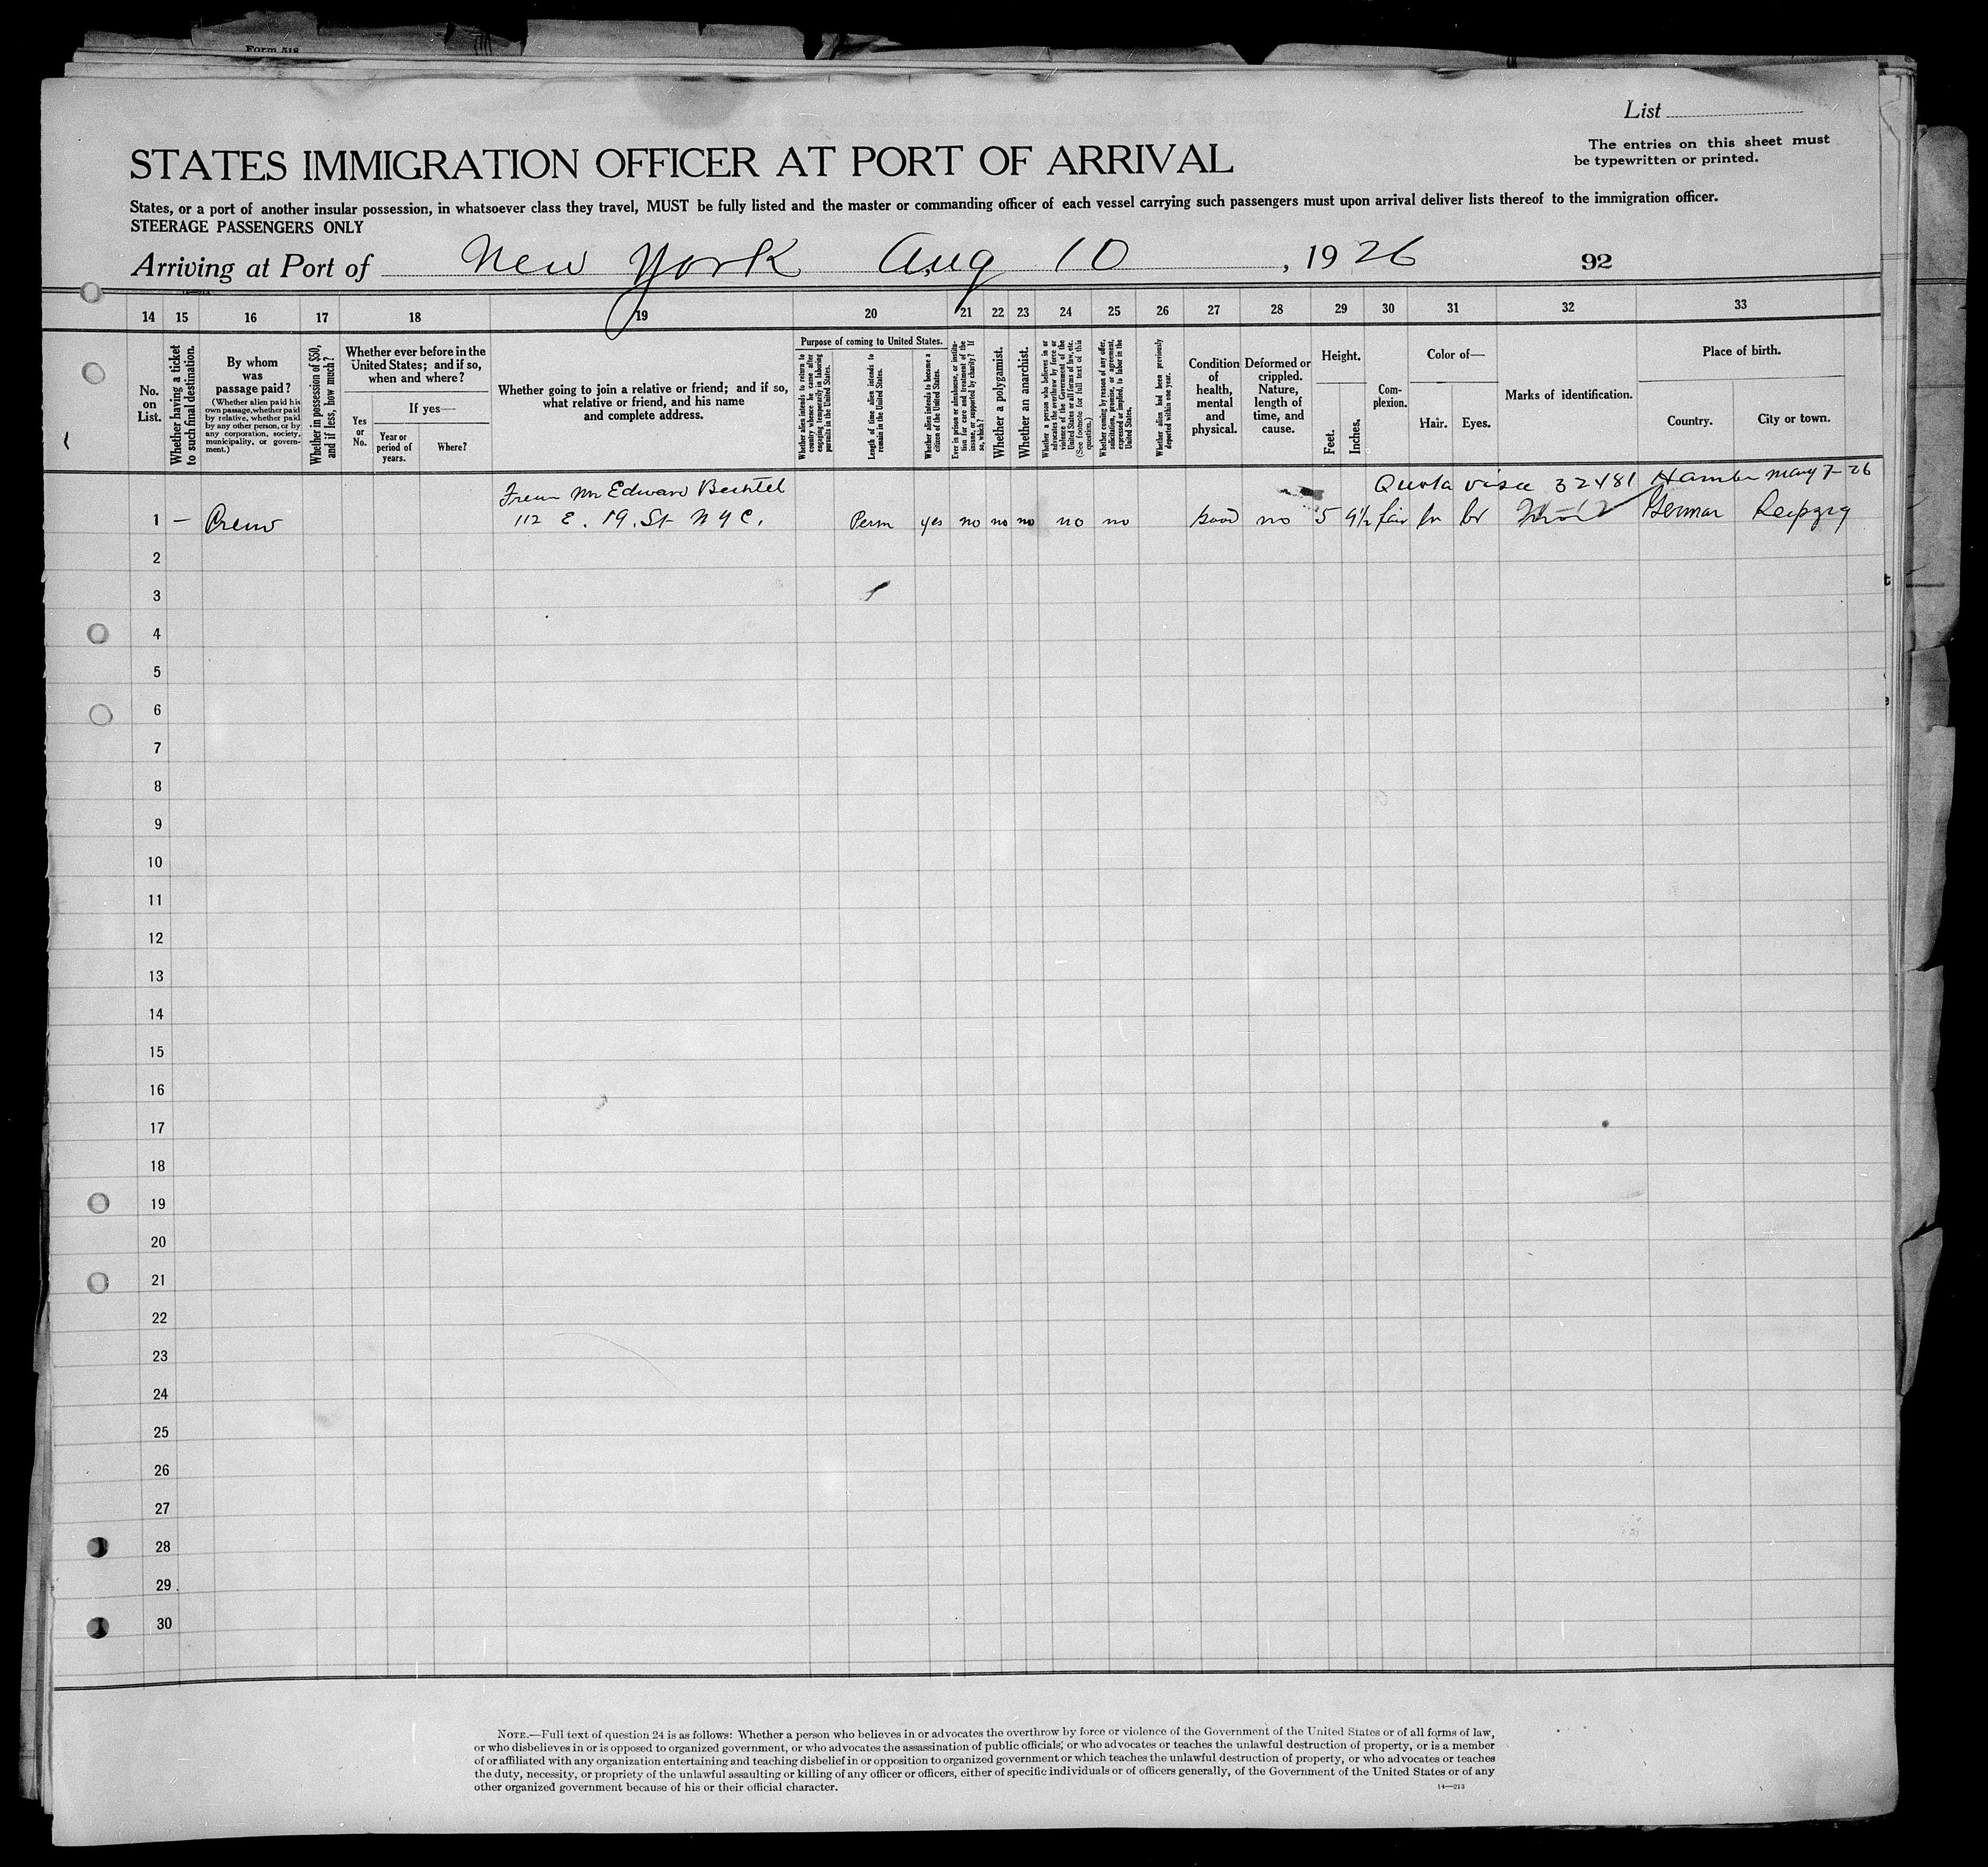 Form 518
List
The entries on this sheet must
be typewritten or printed.
STATES IMMIGRATION OFFICER AT PORT OF ARRIVAL
States, or a port of another insular possession, in whatsoever class they travel, MUST be fully listed and the master or commanding officer of each vessel carrying such passengers must upon arrival deliver lists thereof to the immigration officer.
STEERAGE PASSENGERS ONLY
Arriving at Port of New York Aug 10, 1926 92
14 15 16 17 18 19 20 21 22 23 24 25 26 27 28 29 30 31 32 33
No.
on
List.
Whether having a ticket
to such final destination.
By whom
was
passage paid?
(Whether alien paid his
own passage, whether paid
by relative, whether paid
by any other person, or by
any corporation, society,
municipality, or govern-
ment.)
Whether in possession of $50,
and if less, how much?
Whether ever before in the
United States; and if so,
when and where?
Yes
or
No.
If yes—
Year or
period of
years.
Where?
Whether going to join a relative or friend; and if so,
what relative or friend, and his name
and complete address.
Purpose of coming to United States.
Whether alien intends to return to
country whence he came after
engaging temporarily in laboring
pursuits in the United States.
Length of time alien intends to
remain in the United States.
Whether alien intends to become a
citizen of the United States.
Ever in prison or almshouse, or institu-
tion for care and treatment of the
insane, or supported by charity? If
so, which?
Whether a polygamist.
Whether an anarchist.
Whether a person who believes in or
advocates the overthrow by force or
violence of the Government of the
United States or all forms of law, etc.
(See footnote for full text of this
question.)
Whether coming by reason of any offer,
solicitation, promise, or agreement,
expressed or implied, to labor in the
United States.
Whether alien had been previously
deported within one year.
Condition
of
health,
mental
and
physical.
Deformed or
crippled.
Nature,
length of
time, and
cause.
Height.
Feet.
Inches.
Com-
plexion.
Color of—
Hair. Eyes.
Marks of identification.
Place of birth.
Country. City or town.
Mr Edward Bechtel Quota visa 32481 Hamber May 7-26
1 — Crew 112 E. 19. St N Y C. Perm yes no no no no no Good no 5 9½ fair br br German Leipzig
2
3
4
5
6
7
8
9
10
11
12
13
14
15
16
17
18
19
20
21
22
23
24
25
26
27
28
29
30
NOTE.—Full text of question 24 is as follows: Whether a person who believes in or advocates the overthrow by force or violence of the Government of the United States or of all forms of law,
or who disbelieves in or is opposed to organized government, or who advocates the assassination of public officials, or who advocates or teaches the unlawful destruction of property, or is a member
of or affiliated with any organization entertaining and teaching disbelief in or opposition to organized government or which teaches the unlawful destruction of property, or who advocates or teaches
the duty, necessity, or propriety of the unlawful assaulting or killing of any officer or officers, either of specific individuals or of officers generally, of the Government of the United States or of any
other organized government because of his or their official character.
14—213